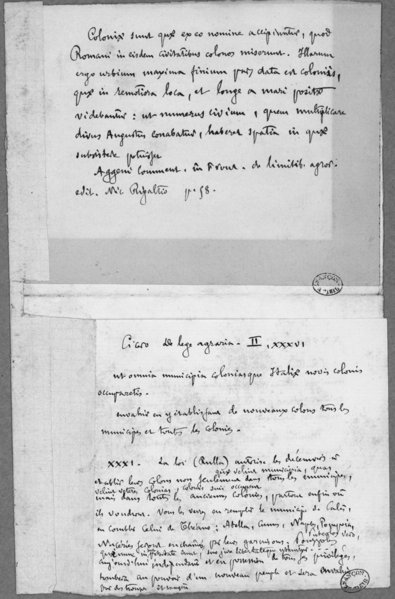 Coloniæ sunt quæ ex eo nomine accipiuntur, quod
Romani in eisdem civitatibus colonos miserunt. Illarum
ergo urbium maxima finium pars data est coloniis,
quæ in remotiora loca, et longe a mari positæ
videbantur : ut numerus civium, quem multiplicare
divus Augustus conabatur, haberet spatia in quæ
subsistere potuisset
Aggeni Comment. in Front. de limitib. agror.
edit. Nic Rigaltio p. 58.
Cicero De lege agraria - II, XXXVI
ut omnia municipia coloniasque Italiæ novis colonis
occuparetis.
envahir en y établissant de nouveaux colons tous les
municipes et toutes les colonies.
XXXI. La loi (Rulla) autorise les décemvirs à
quæ velint municipia, quas
établir leurs colons non seulement dans tous les municipes,
velint veteres colonias, colonis suis occupent
mais dans toutes les anciennes colonies, partout enfin où
ils voudront. Vous les verrez en remplir le municipe de Calès,
en combler celui de Teanum : Atella, Cumes, Naples, Pompeia,
Nucérie seront enchaînés par leur garnisons.
Puteolos vero,
qui nunc in potestate sunt, suo jure libertateque utuntur
aujourd'hui indépendante et en possession de tous ses privilèges,
tombera au pouvoir d'un nouveau peuple et sera envahi
par des troupes